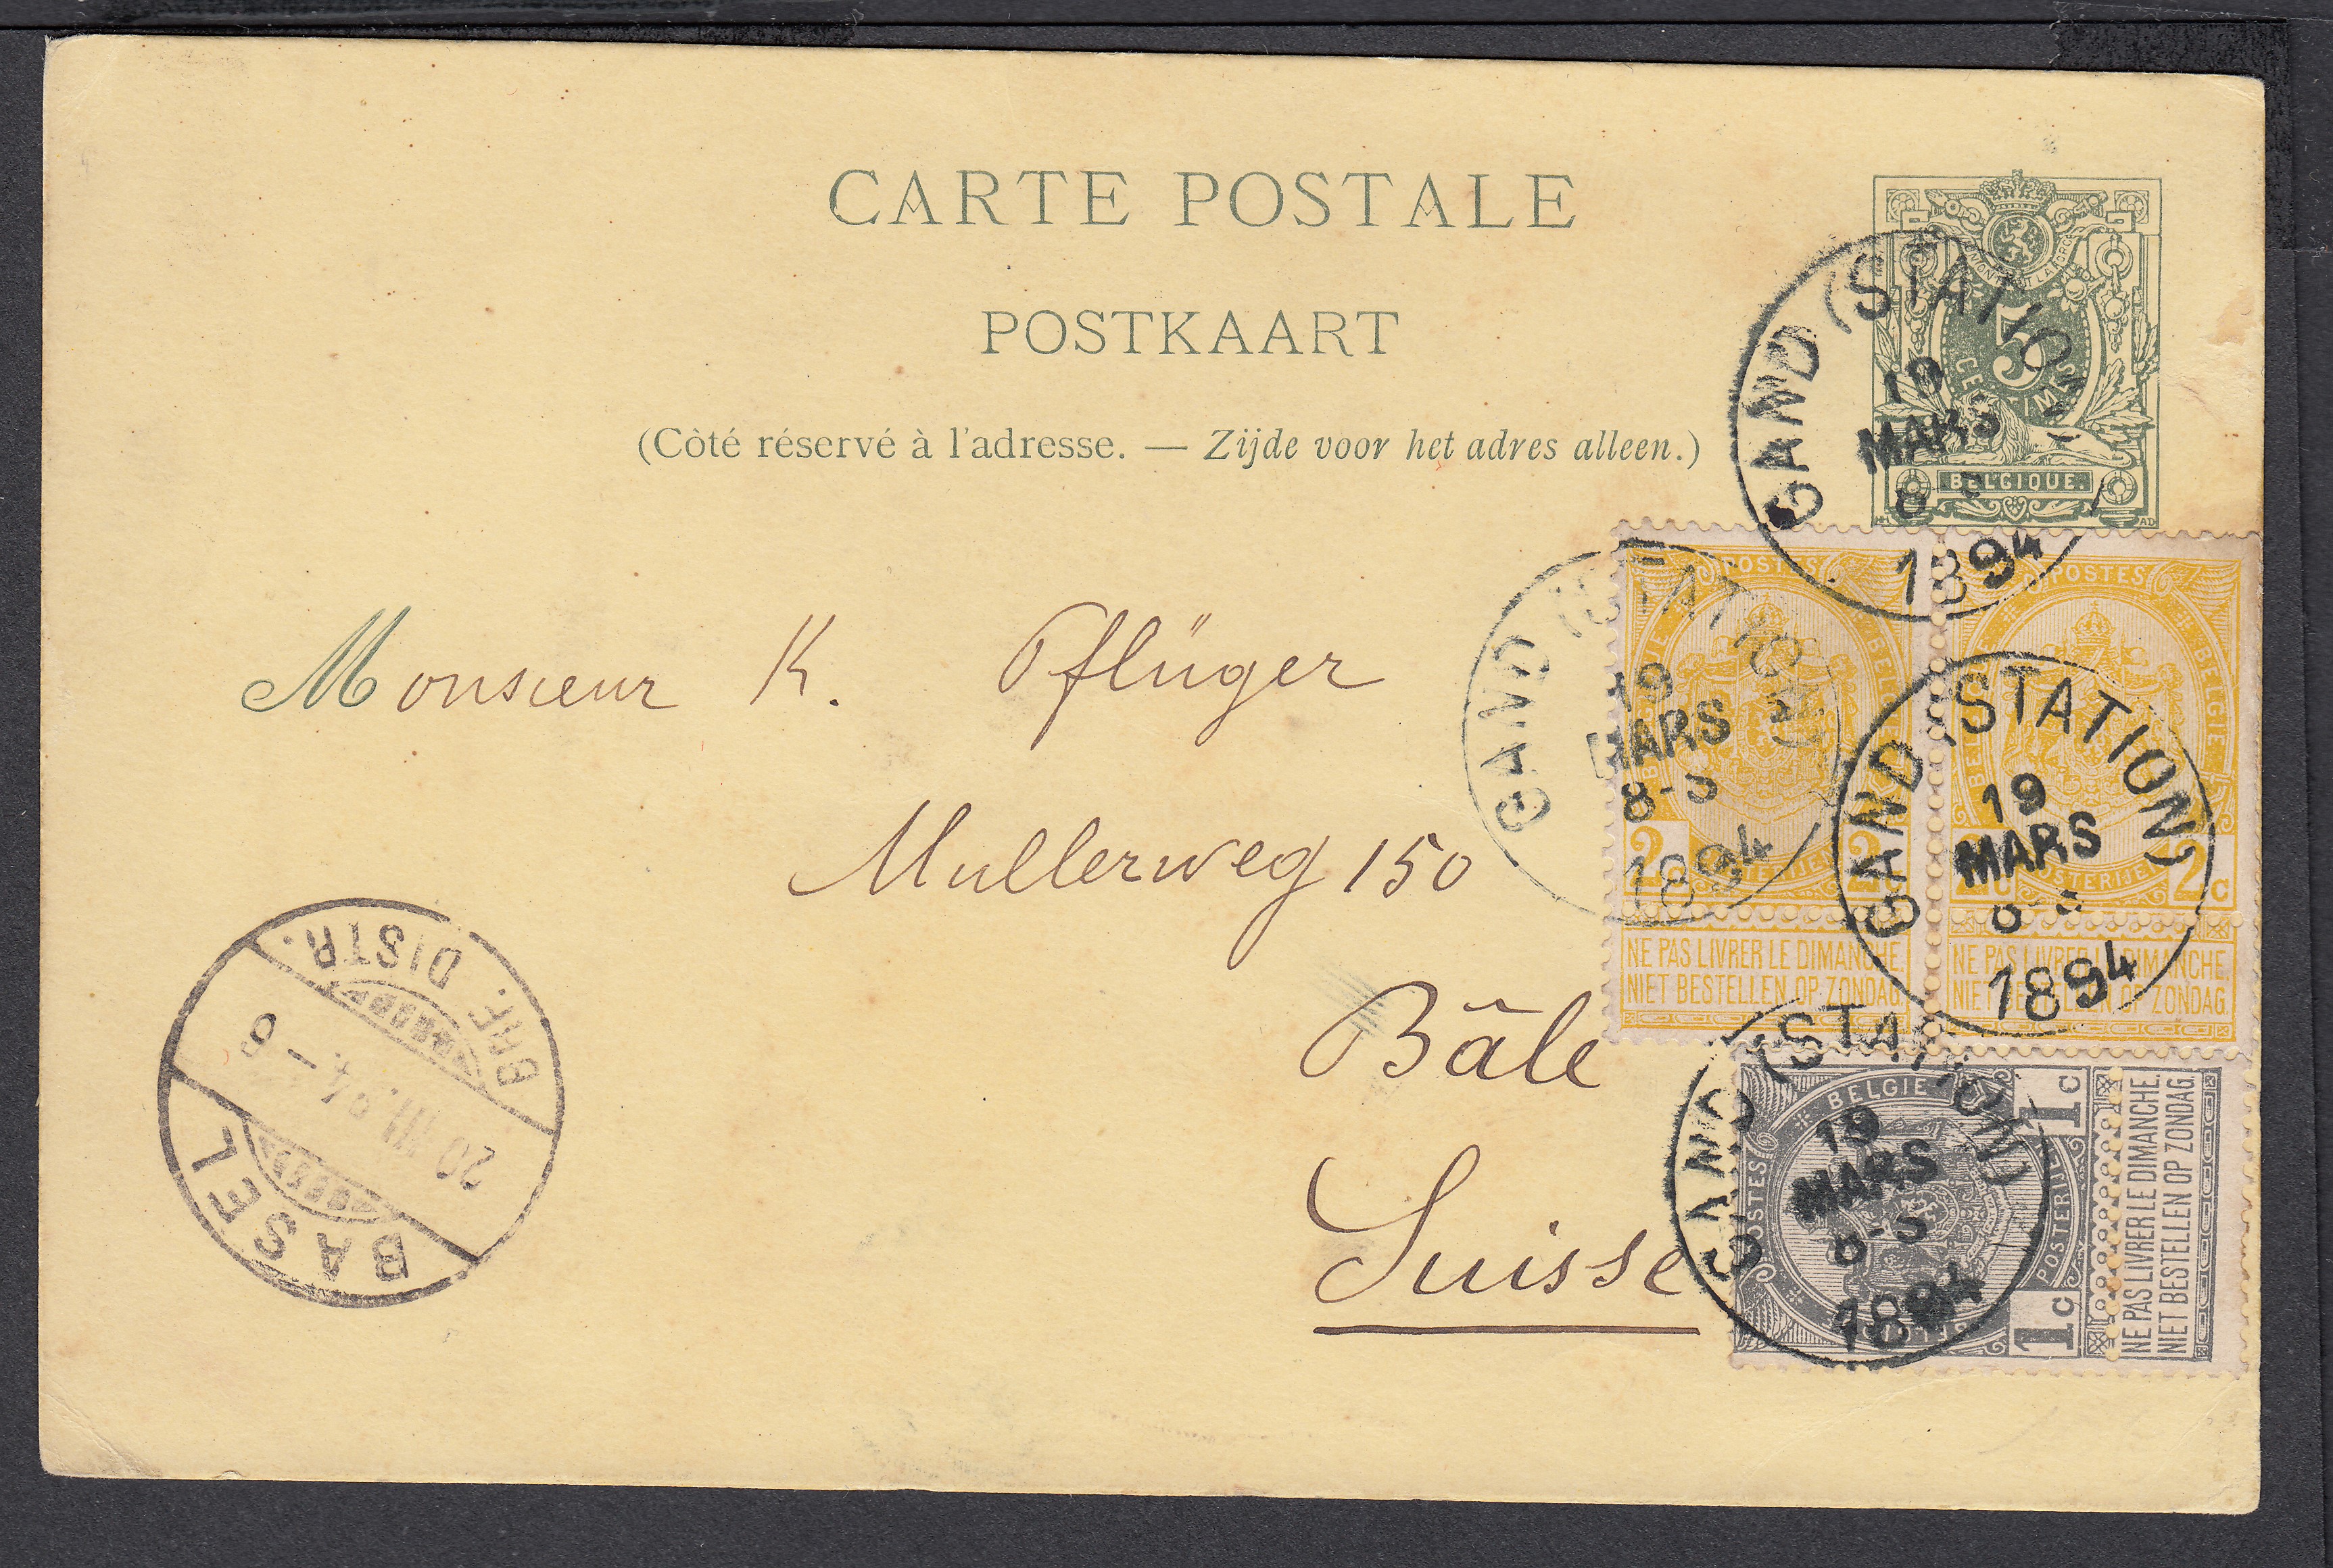 CARTE POSTALE
POSTKAART
(Côté réservé à l'adresse. — Zijde voor het adres alleen.)
5
CENTIMES
BELGIQUE.
GAND (STATION)
19
MARS
1894
Monsieur K. Pflüger
Mullerweg 150
Bâle
Suisse
POSTES
BELGIQUE
BELGIE
POSTERIJEN
2c 2c
NE PAS LIVRER LE DIMANCHE.
NIET BESTELLEN OP ZONDAG.
GAND (STATION)
19
MARS
8-S
1894
POSTES
BELGIQUE
BELGIE
POSTERIJEN
2c 2c
NE PAS LIVRER LE DIMANCHE.
NIET BESTELLEN OP ZONDAG.
GAND (STATION)
19
MARS
8-S
1894
POSTES
BELGIE
POSTERIJEN
1c 1c
NE PAS LIVRER LE DIMANCHE.
NIET BESTELLEN OP ZONDAG.
GAND (STATION)
19
MARS
8-S
1894
BASEL
20.III.94.–6
BRF. DISTR.